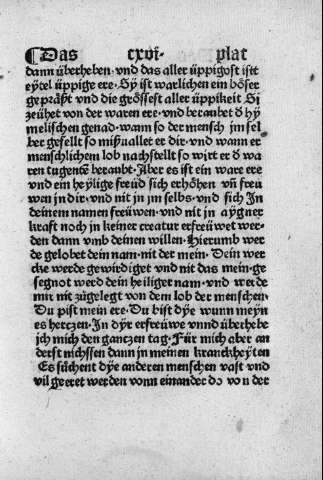 ¶ Das cxvi· plat
dann überheben· vnd das aller üppigost istt
eytel üppige ere· Sy ist warlichen ein böser
gepräſt vnd die grösſest aller üppikeit Si
zeühet von der waren ere· vnd beraubet d hy
melischen genad· wann so der mensch jm sel
ber gefellt so mißuallet er dir· vnd wann er
menschlichem lob nachstellt so wirt er d wa
ren tugenten beraubt· Aber es ist ein ware ere
vnd ein heylige freüd sich erhöhen vn̄ freu
wen jn dir· vnd nit jn jm selbs· vnd sich In
deinem namen freüwen· vnd nit jn aygner
kraft noch jn keiner creatur erfreüwet wer⸗
den dann vmb deinen willen· Hierumb wer
de gelobet dein nam· nit der mein· Dein wer
cke werde gewirdiget vnd nit das mein· ge
segnot werd dein heiliger nam· vnd werde
mir nit zůgelegt von dem lob der menschen·
Du pist mein ere· Du bist dye wunn meyn
es hertzen· In dyr erfreüwe vnnd überhebe
ich mich den ganczen tag· Für mich aber an
derst nichssen dann jn meinen kranckheyten
Es sůchent dye anderen menschen vast vnd
vil greret werden vonn einander do von der